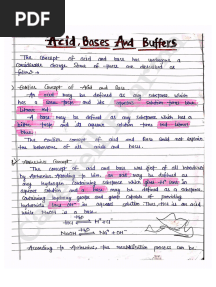 PDF
Acid, Bases And Buffers
The concept of acid and base has undergone a
considerable change. Some of these are described as
follows →
Earlier Concept of Acid and Base
An acid may be defined as any substance which
has a sour taste and its aqueous solution turns blue
litmus red.
A base may be defined as any substance which has a
bitter taste and its aqueous solution turns red litmus
blue.
The earlier concept of acid and base could not explain
the behaviour of all acids and bases.
Arrhenius Concept-
The concept of acid and base was first of all introduced
by Arrhenius. According to him, an acid may be defined as
any hydrogen containing substance which gives H⁺ ions in
aqueous solution and a base may be defined as a substance
containing hydroxy group and capable of providing
hydroxide ions OH⁻ in aqueous solution. Thus HCl is an acid
while NaOH is a base.
HCl H⁺ + Cl⁻
NaOH Na⁺ + OH⁻
According to Arrhenius, the neutralization process can be